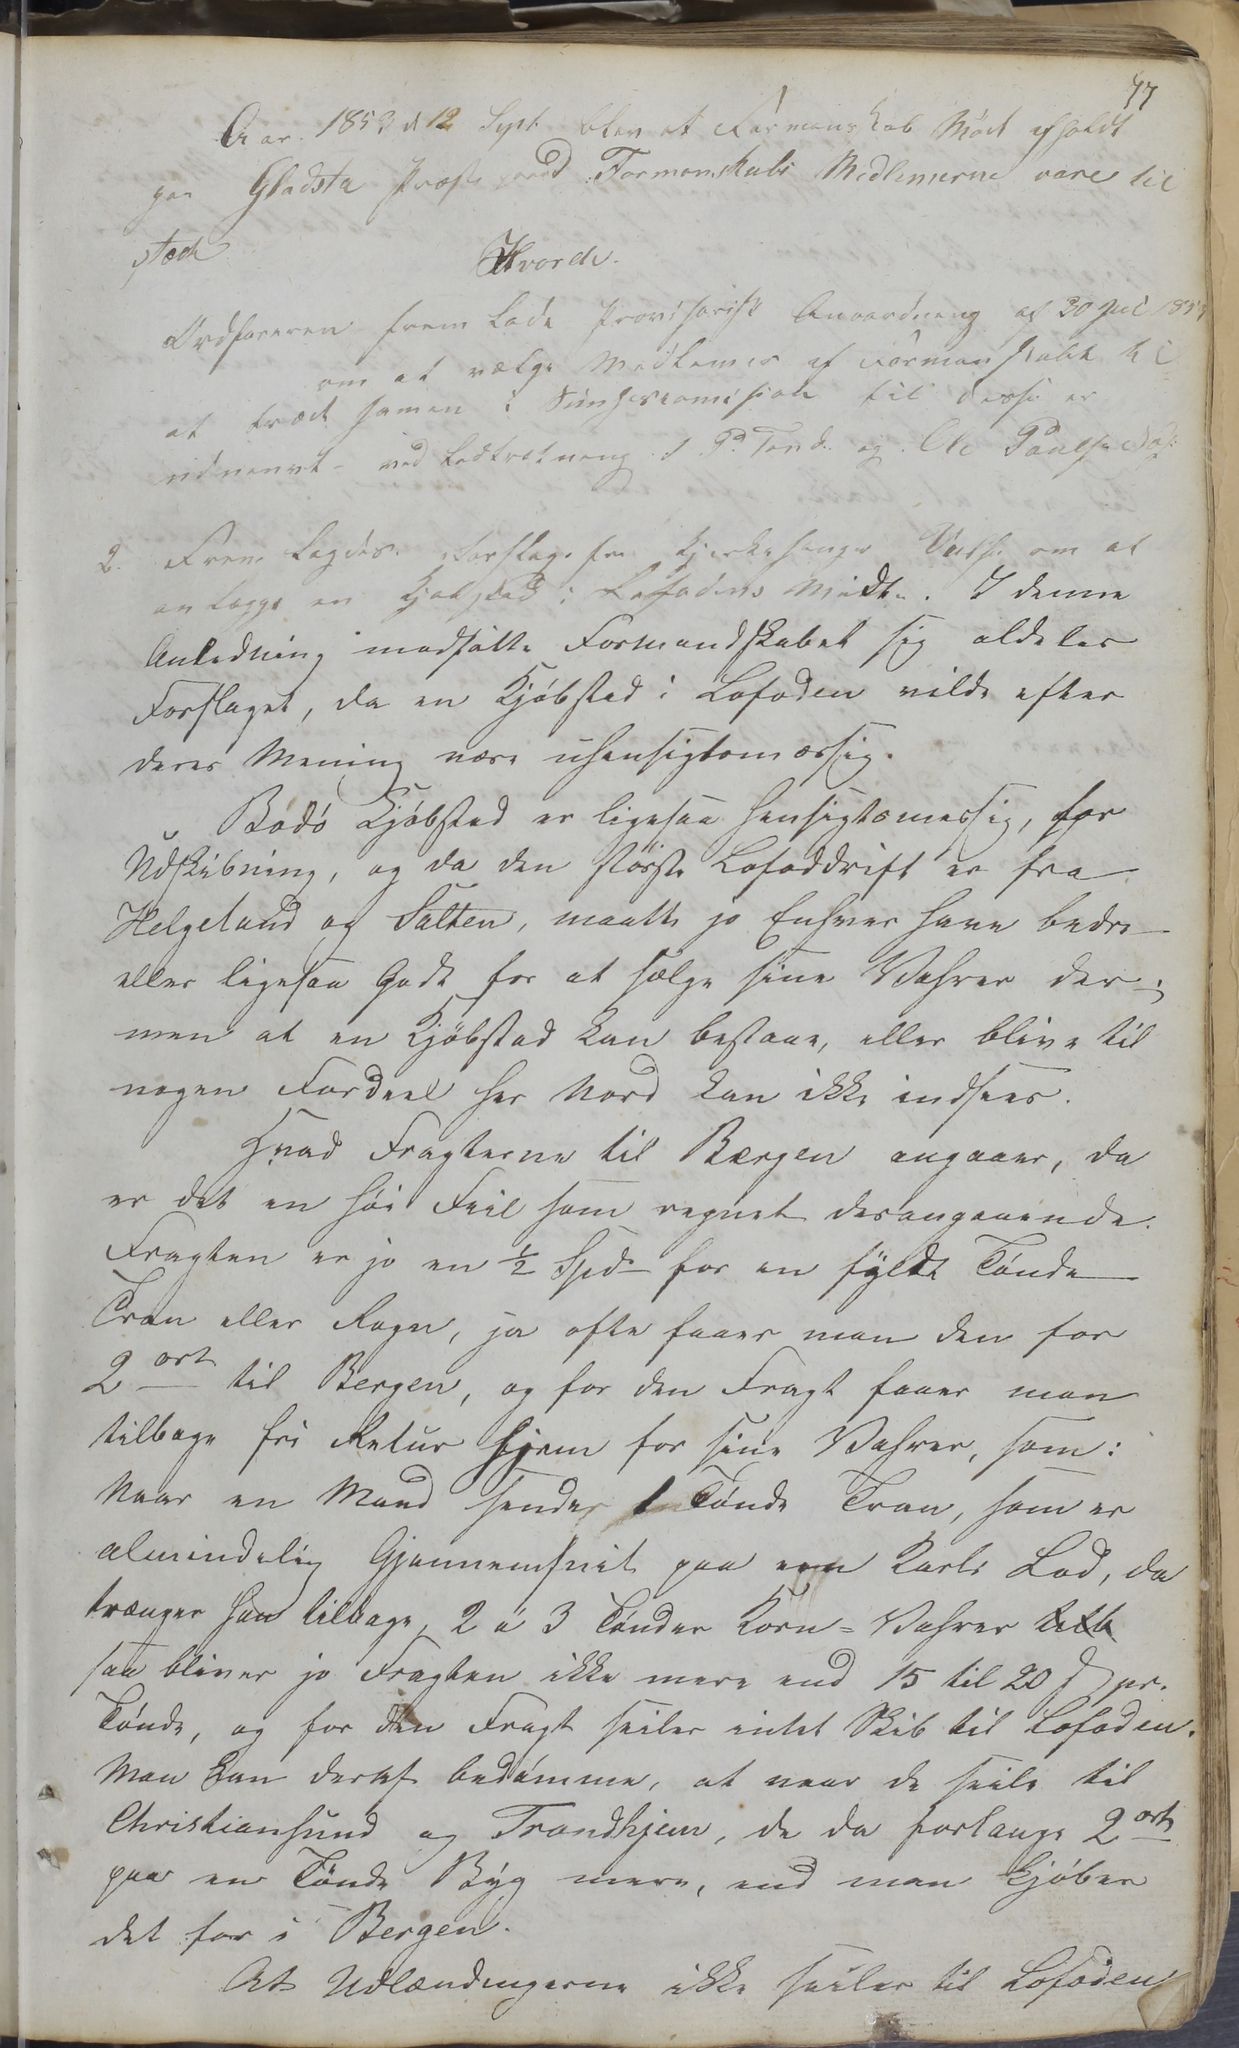 77
Aar 1853 d 12 Sept blev et Formanskab Møde afholdt
paa Gladsta Præstegaard Formanskabs Medlemerne vare til
stæde
Hvorda.
Ordføreren frem lade Provisorisk Anoardning af 30 Jul 1853
om at vælge Medlemer af Formanskabet til
at træde samen i til disse er
udnevnt ved Lodtrekning J P. Tond. og Ole Paulsen
2. Frem lagdes Forslag fra Kjerkesanger om at
anlægge en Kjøbstad i Lofodens Midte. I denne
Anledning modsatte Formandskabet sig aldeles
Forslaget, da en Kjøbstad i Lofoden vilde efter
deres Mening være uhensigtsmæssig.
Bodø Kjøbstad er ligesaa hensigtsmessig, for
Udskibning, og da den største Lofoddrift er fra
Helgeland og Salten, maatte jo Enhver have bedre
eller ligesaa Godt for at sælge sine Vahrer der;
men at en Kjøbstad kan bestaae, eller blive til
nogen Fordeel her Nord kan ikke indsees.
Hvad Fragterne til Bergen angaaer, da
er det en høi Feil som regnet desangaaende.
Fragten er jo en ½ Spd for en fyldt Tønde
Tran eller Rogn, ja ofte faaer man den for
2 ort til Bergen, og for den Fragt faaer man
tilbage fri Retur hjem for sine Vahrer, som:
Naar en Mand sender 1 Tønde Tran, som er
almindelig Gjennemsnit paa een Karls Lod, da
trænger han tilbage, 2 a 3 Tønder Korn=Vahrer
saa bliver jo Fragten ikke mere end 15 til 20 s pr.
Tønde, og for den Fragt seiler intet Skib til Lofoden.
Man kan deraf bedømme, at naar de seile til
Christiansund og Trondhjem, de da forlange 2 ort
paa en Tønde Byg mere, end man kjøber
det for i Bergen.
At Udlændingerne ikke seiler til Lofoden